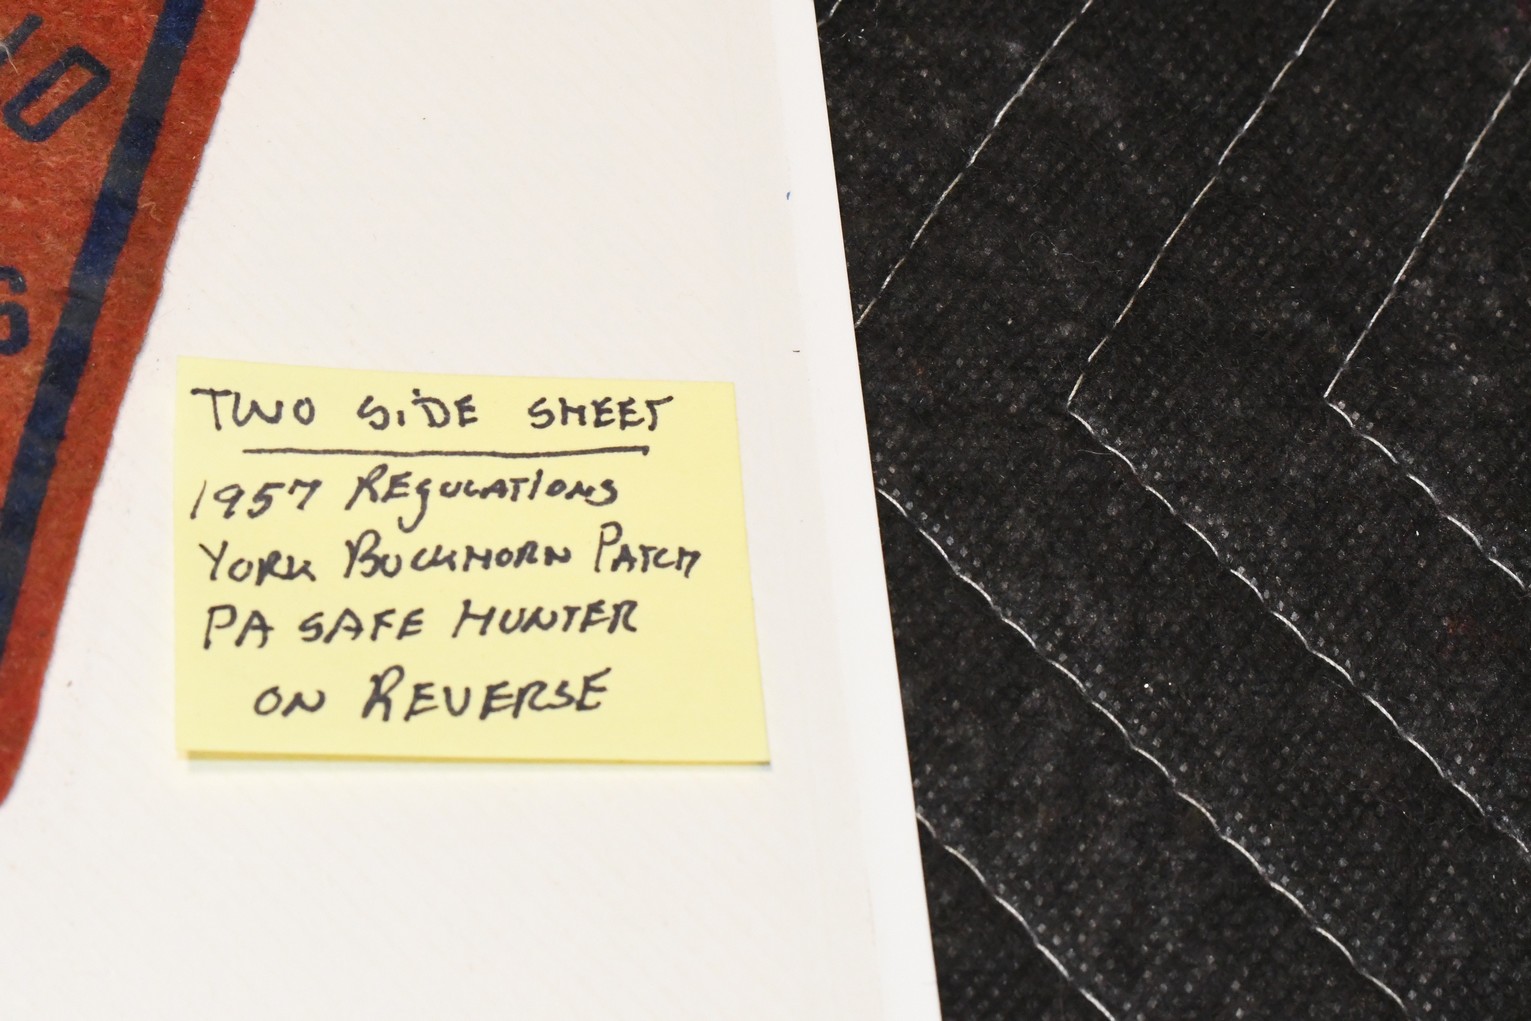 TWO SiDE SHEET
1957 REgULATIONS
YORK BUCKHORN PATCH
PA SAFE HUNTER
ON REVERSE